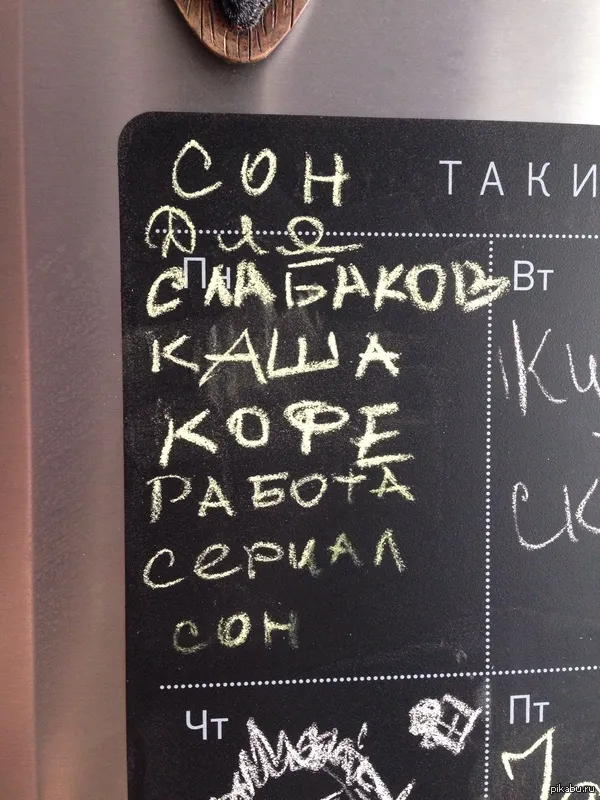 СОН
ТАКИ
ДЛЯ
Пн
Вт
СЛАБАКОВ
КАША
КОФЕ
РАБОТА
СЕРИАЛ
СОН
Чт
Пт
pikabu.ru